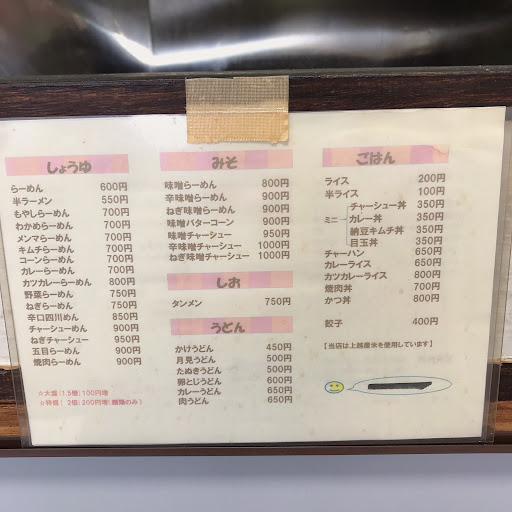 しょうゆ
らーめん 600円
半ラーメン 550円
もやしらーめん 700円
わかめらーめん 700円
メンマらーめん 700円
キムチらーめん 700円
コーンらーめん 700円
カレーらーめん 700円
カツカレーらーめん 800円
野菜らーめん 750円
ねぎらーめん 750円
辛口四川めん 850円
チャーシューめん 900円
ねぎチャーシュー 950円
五目らーめん 900円
焼肉らーめん 900円
☆大盛(1.5倍)100円増
☆特盛( 2倍)200円増(麺類のみ)
みそ
味噌らーめん 800円
辛味噌らーめん 900円
ねぎ味噌らーめん 900円
味噌バターコーン 900円
味噌チャーシュー 950円
辛味噌チャーシュー 1000円
ねぎ味噌チャーシュー 1000円
しお
タンメン 750円
うどん
かけうどん 450円
月見うどん 500円
たぬきうどん 500円
卵とじうどん 600円
カレーうどん 650円
肉うどん 650円
ごはん
ライス 200円
半ライス 100円
ミニ
チャーシュー丼 350円
カレー丼 350円
納豆キムチ丼 350円
目玉丼 350円
チャーハン 650円
カレーライス 650円
カツカレーライス 800円
焼肉丼 700円
かつ丼 800円
餃子 400円
【当店は上越産米を使用しています】